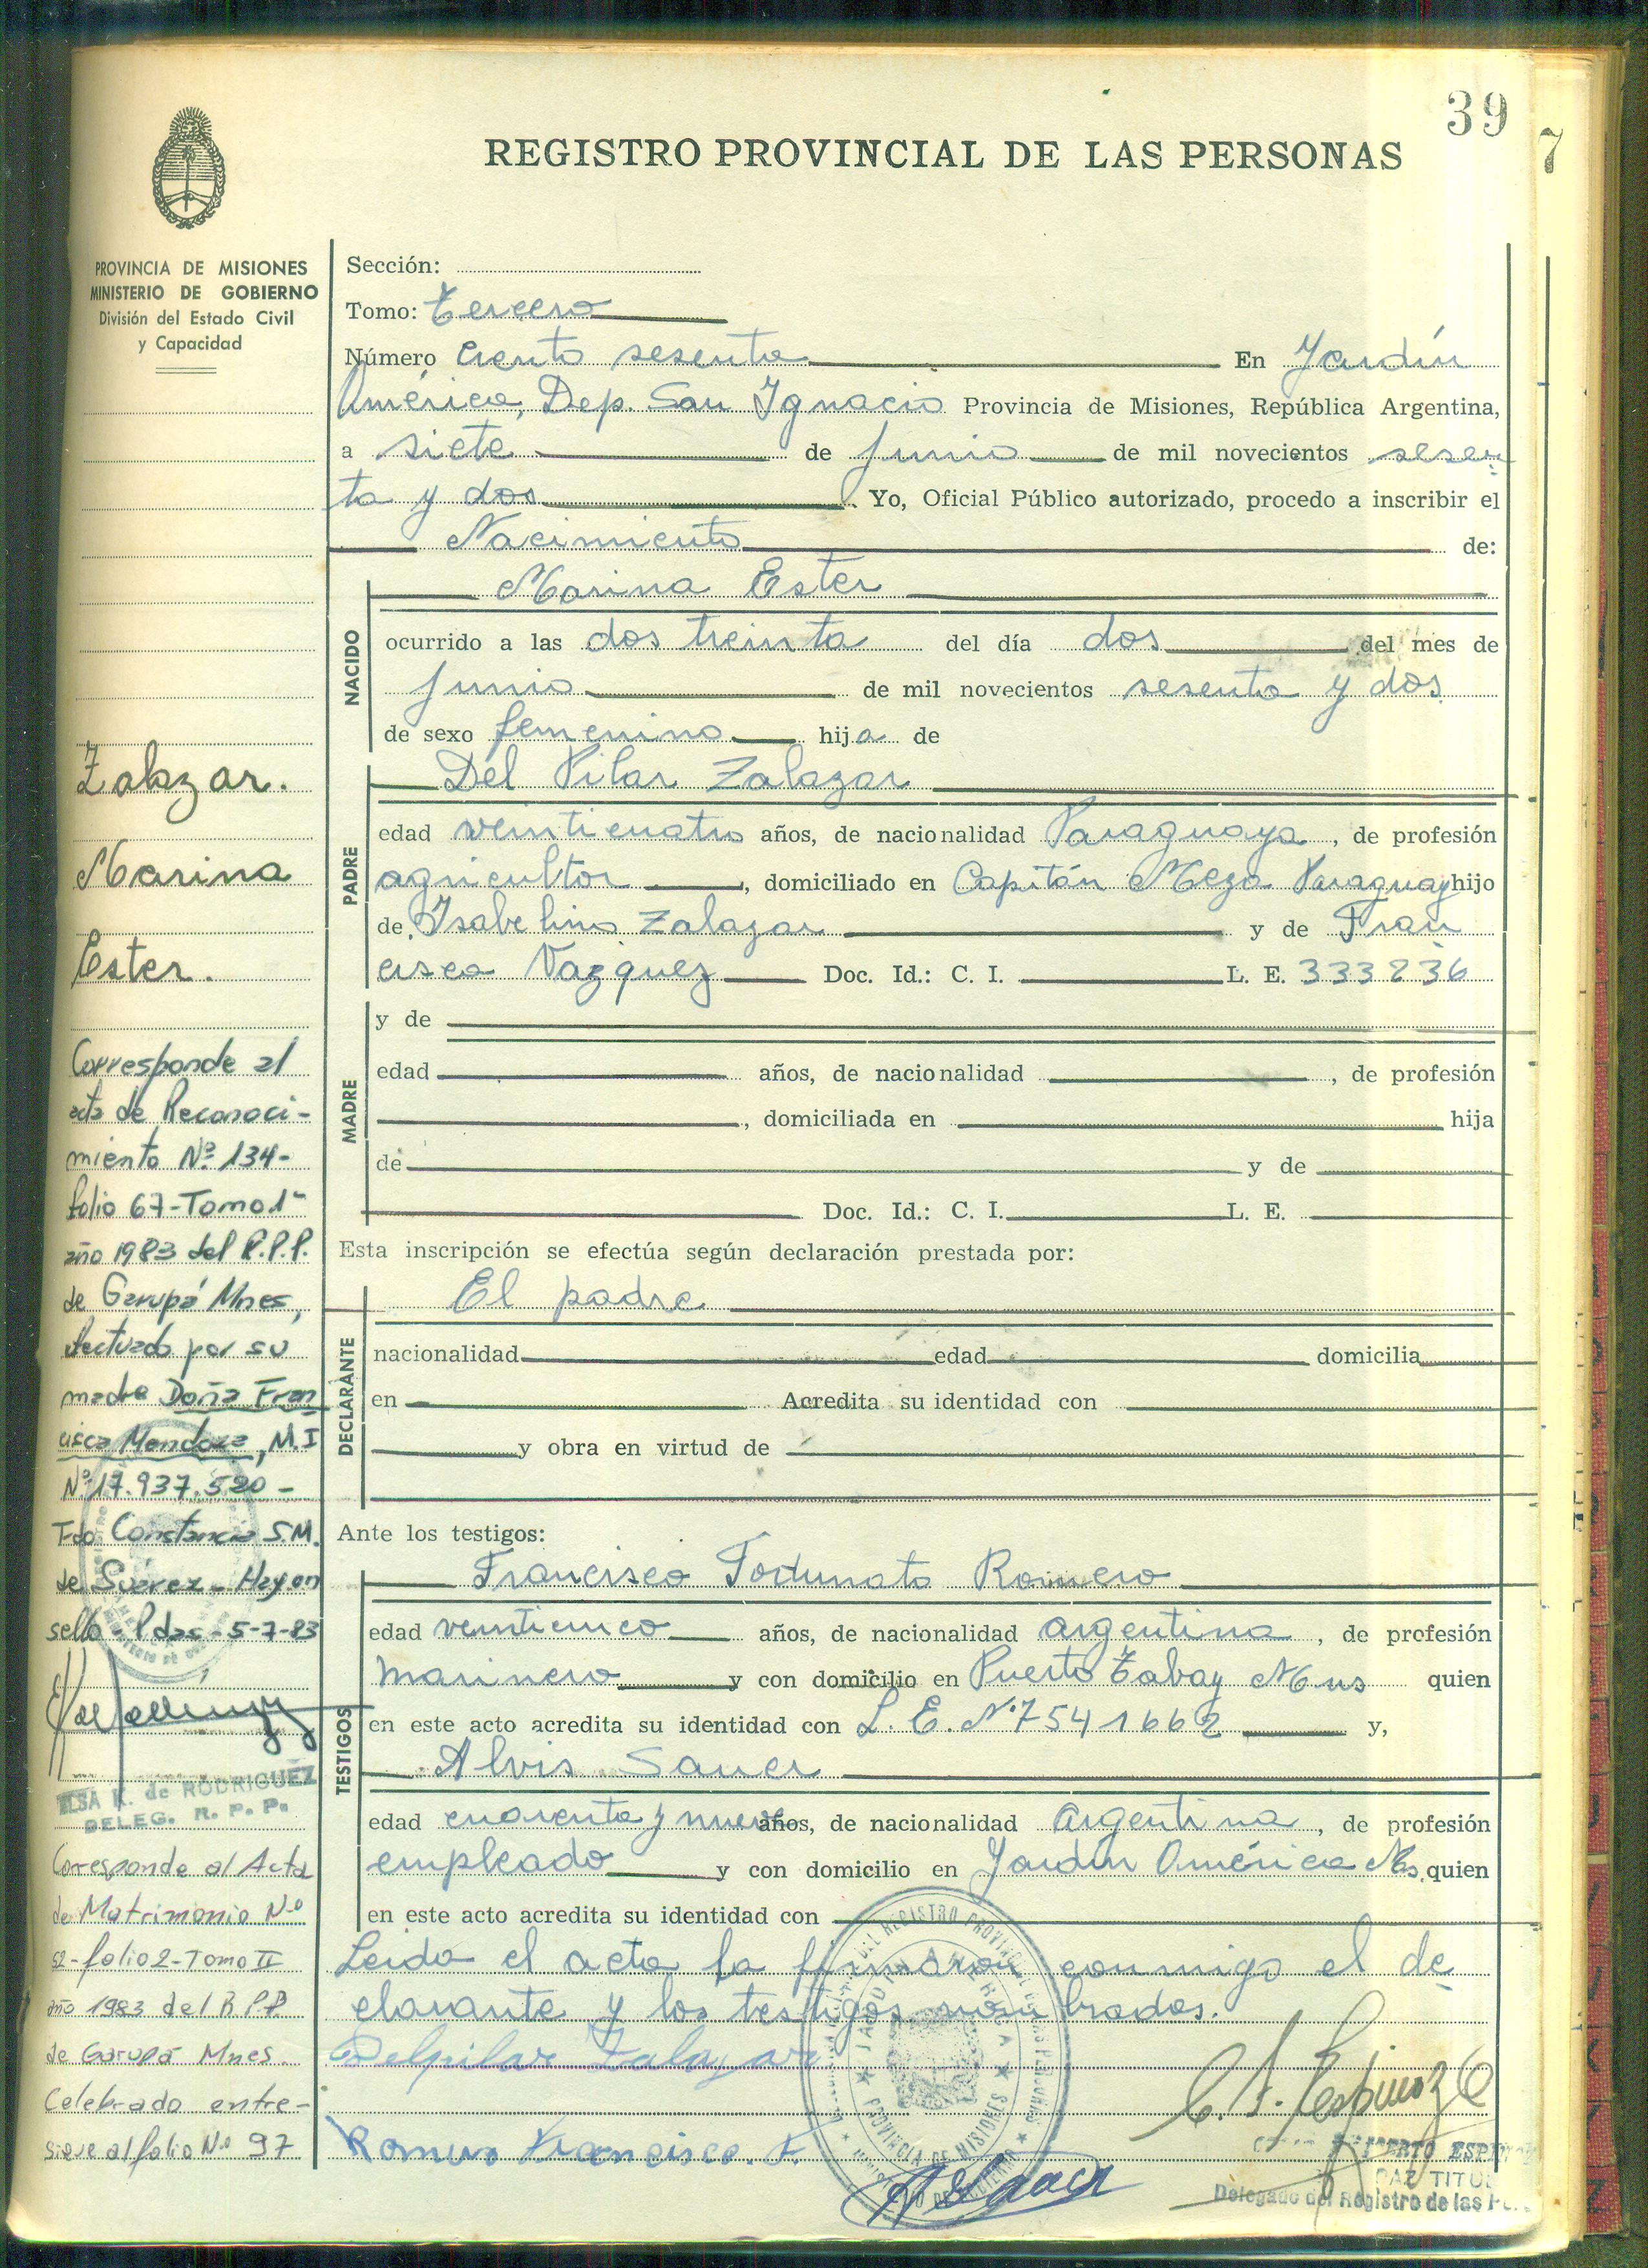 39
7
REGISTRO PROVINCIAL DE LAS PERSONAS
PROVINCIA DE MISIONES
MINISTERIO DE GOBIERNO
División del Estado Civil
y Capacidad
Sección:
Tomo: tercero
Número ciento sesenta En Jardín
América, Dep. San Ignacio Provincia de Misiones, República Argentina,
a siete de junio de mil novecientos sesen
ta y dos. Yo, Oficial Público autorizado, procedo a inscribir el
Nacimiento de:
Marina Ester
NACIDO
ocurrido a las dos treinta del día dos del mes de
junio de mil novecientos sesenta y dos
de sexo femenino hija de
Del Pilar Zalazar
PADRE
edad veinticuatro años, de nacionalidad Paraguaya, de profesión
agricultor, domiciliado en Capitán Meza Paraguay hijo
de Isabelino Zalazar y de Fran
cisca Vazquez Doc. Id.: C. I. L. E. 333236
MADRE
y de
edad años, de nacionalidad , de profesión
, domiciliada en hija
de y de
Doc. Id.: C. I. L. E.
Esta inscripción se efectúa según declaración prestada por:
El padre
DECLARANTE
nacionalidad edad domicilia
en Acredita su identidad con
y obra en virtud de
Ante los testigos:
Francisco Fortunato Romero
TESTIGOS
edad veinticinco años, de nacionalidad argentina, de profesión
marinero y con domicilio en Puerto Tabay Mns quien
en este acto acredita su identidad con L. E. Nº 7541662 y,
Alvis Sauer
edad cuarenta y nueve años, de nacionalidad argentina, de profesión
empleado y con domicilio en Jardín América Ms, quien
en este acto acredita su identidad con
Leida el acta la firmaron conmigo el de
clarante y los testigos nombrados.
Delpilar Zalazar
Romero Francisco. F.
A Sauer
C. A. Espinoza
PAZ TITU
Delegado del Registro de las Per
JARDIN AMERICA
PROVINCIA DE MISIONES
Zalazar.
Marina
Ester.
Corresponde al
acta de Reconoci-
miento Nº 134-
folio 67-Tomo 1º
año 1983 del R.P.P.
de Garupá Mnes,
efectuado por su
madre Doña Fran
cisca Mendoza, M.I
Nº 17.937.520 -
Fdo Constancia S.M.
de Suárez - Hay un
sello - Pdas - 5-7-83
ELSA K. de RODRIGUEZ
DELEG. R. P. P.
Corresponde al Acta
de Matrimonio Nº
52-folio 2-Tomo II
año 1983 del R.P.P.
de Garupá Mnes.
Celebrado entre-
sigue al folio Nº 97